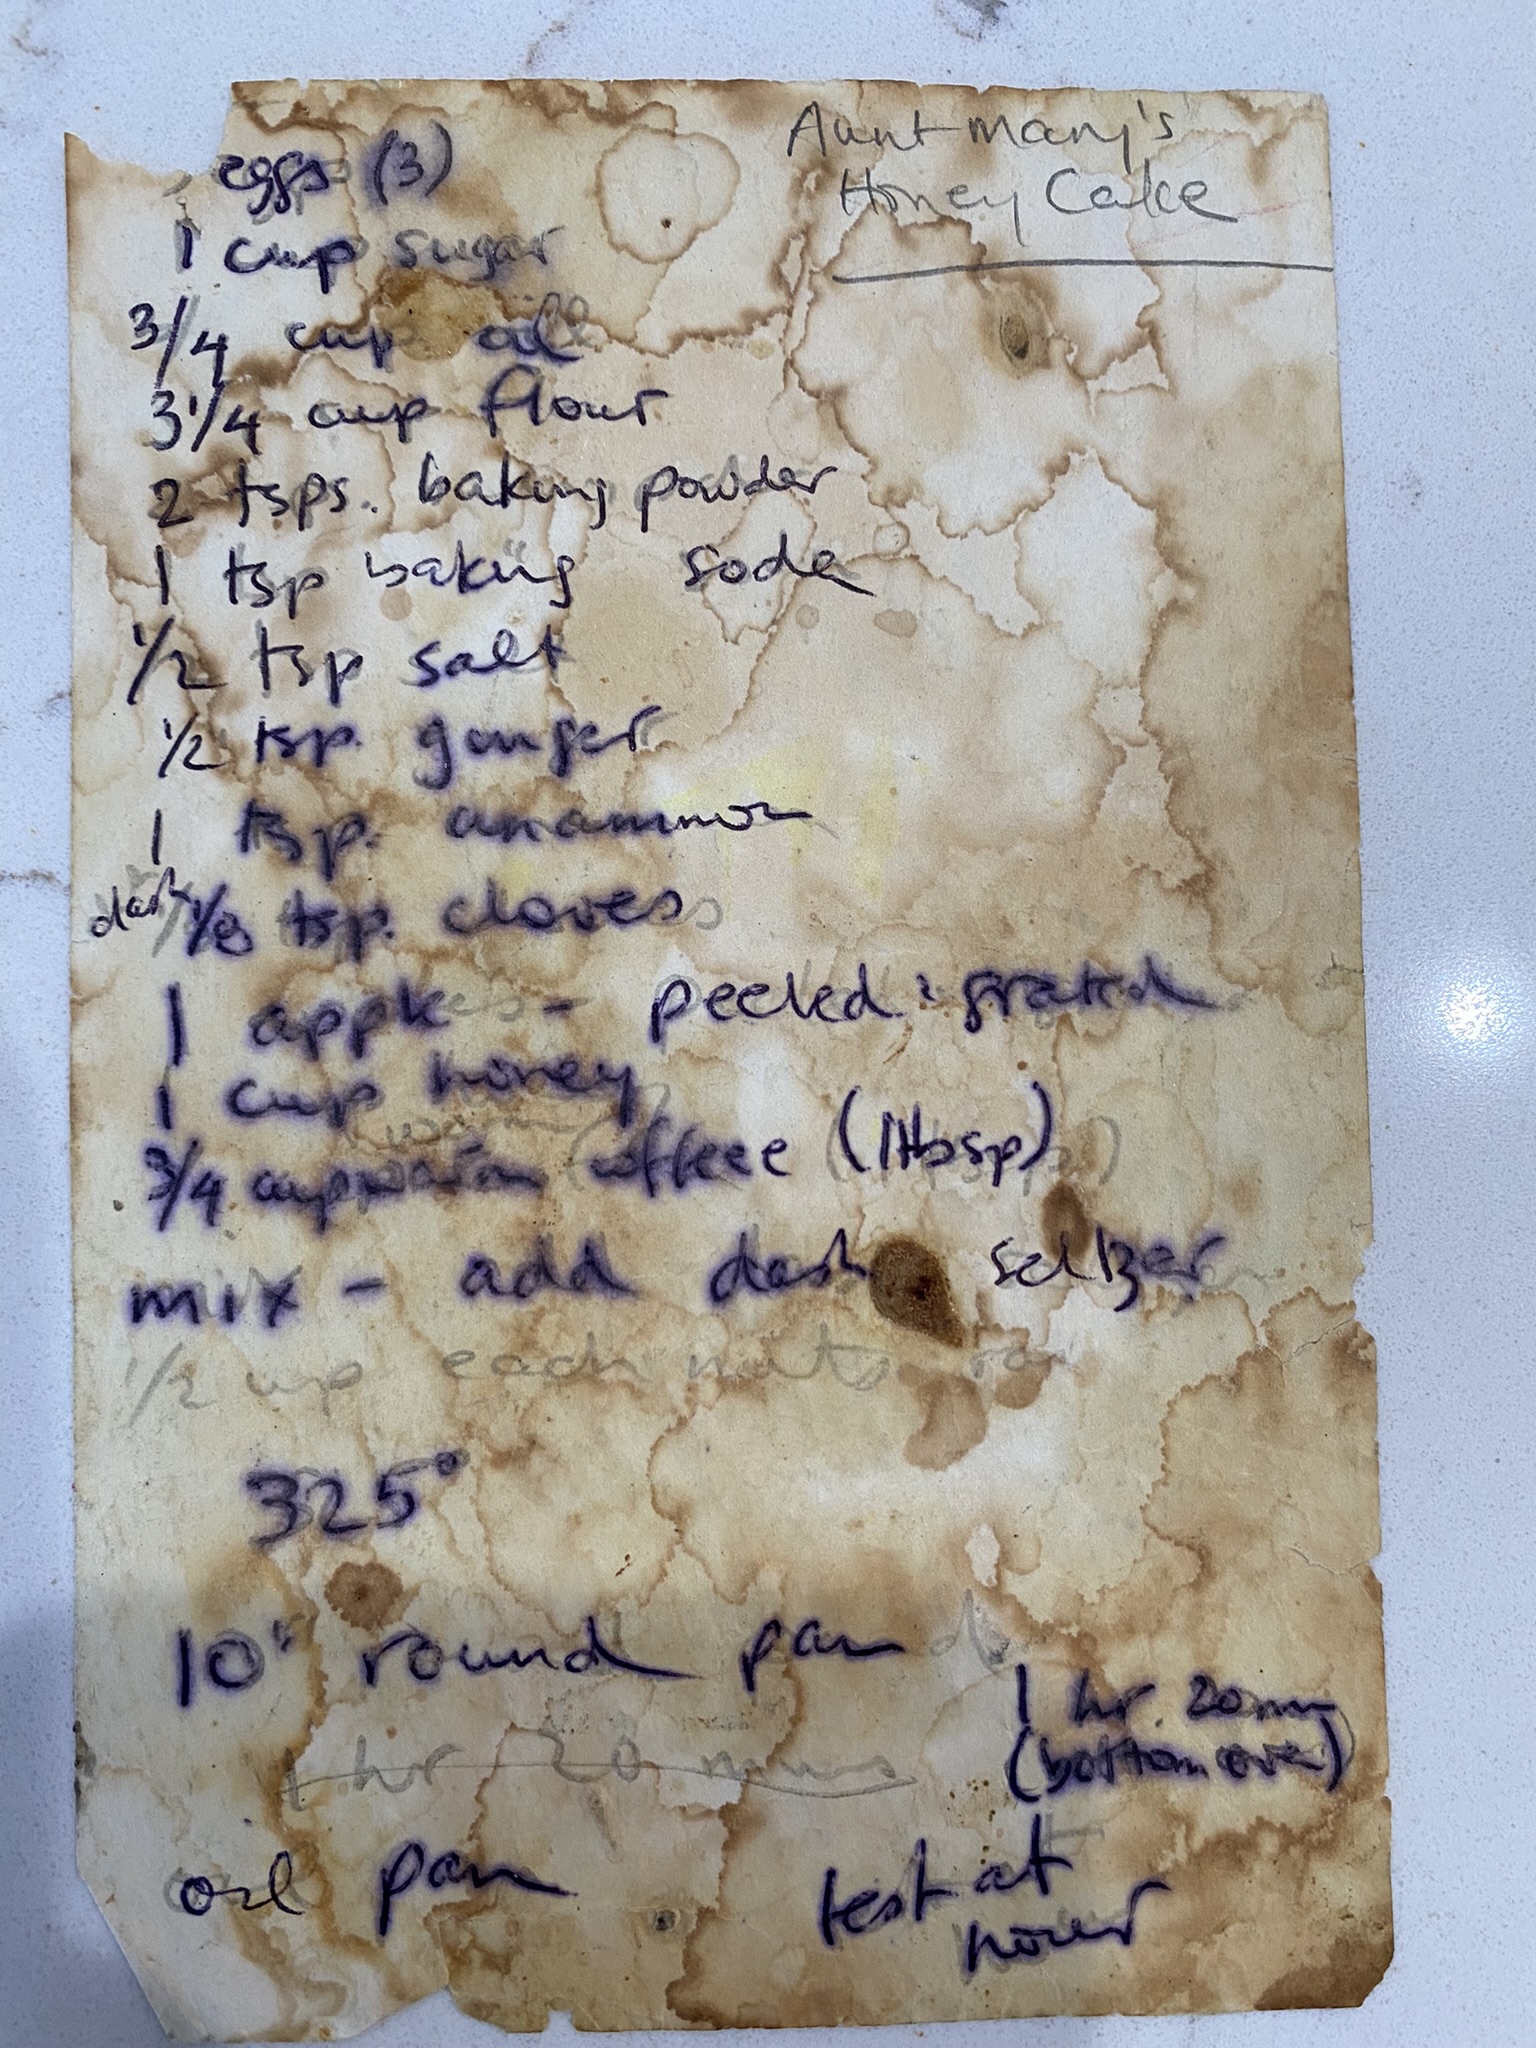 Aunt Mary's
Honey Cake
eggs (3)
1 cup sugar
3/4 cup oil
3 1/4 cup flour
2 tsps. baking powder
1 tsp baking soda
1/2 tsp salt
1/2 tsp. ginger
1 tsp. cinammon
dash 1/8 tsp. cloves
1 apple - peeled & grated
1 cup honey
3/4 cup warm coffeee (1 tbsp)
mix - add dash seltzer
1/2 cup each nuts
325°
10" round pan
1 hr 20 mins
1 hr. 20 min
(bottom oven)
oil pan
test at
hour